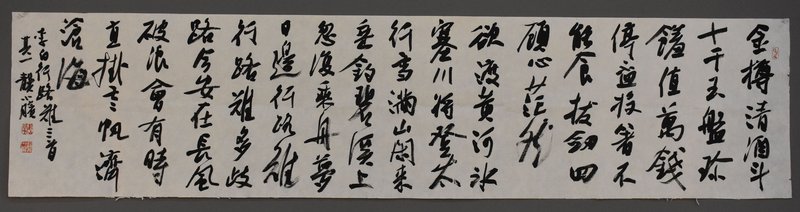 金樽清酒斗
十千玉盤珍
饈值萬錢
停盃投箸不
能食拔劍四
顧心茫然
欲渡黃河冰
塞川將登太
行雪滿山閑來
垂釣碧溪上
忽復乘舟夢
日邊行路難
行路難多歧
路今安在長風
破浪會有時
直掛雲帆濟
滄海
李白行路難三首
其一